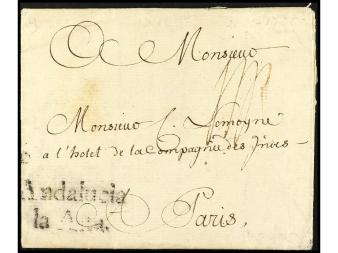 Monsieur
Monsieur C. Lemoyne
a l'hotel de la Compagnie des Indes
Andalucia
la Alta.
A Paris,